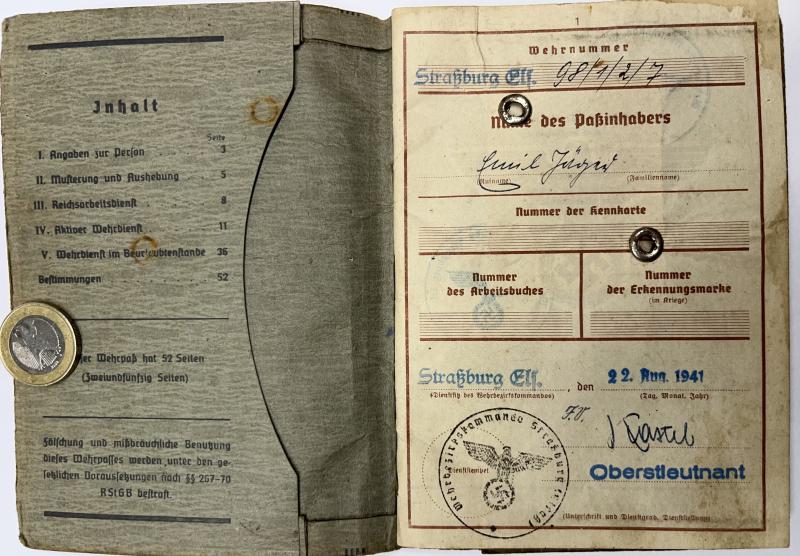 Inhalt
Seite
I. Angaben zur Person . . . 3
II. Musterung und Aushebung . 5
III. Reichsarbeitsdienst . . . 8
IV. Aktiver Wehrdienst . . . 11
V. Wehrdienst im Beurlaubtenstande 36
Bestimmungen . . . . 52
er Wehrpaß hat 52 Seiten
(Zweiundfünfzig Seiten)
Fälschung und mißbräuchliche Benutzung
dieses Wehrpasses werden unter den ge-
setzlichen Voraussetzungen nach §§ 267-70
RStGB bestraft.
1
Wehrnummer
Straßburg Els. 98/1/2/7
Name des Paßinhabers
Emil Jäger
(Rufname) (Familienname)
Nummer der Kennkarte
Nummer
des Arbeitsbuches
Nummer
der Erkennungsmarke
(im Kriege)
Straßburg Els., den 22. Aug. 1941
(Dienstsitz des Wehrbezirkskommandos) (Tag, Monat, Jahr)
Wehrbezirkskommando Straßburg (Elsaß)
(Dienststempel)
Oberstleutnant
(Unterschrift und Dienstgrad, Dienststellung)